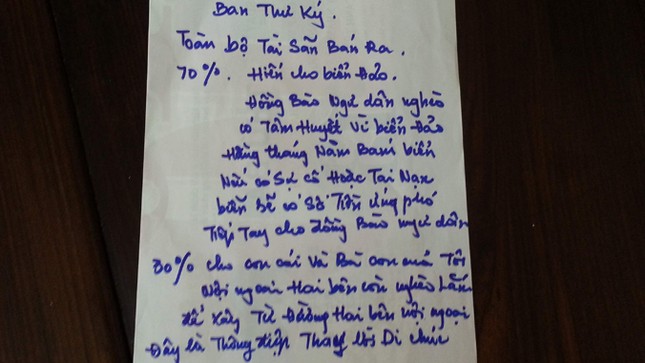 Ban Thư Ký.
Toàn bộ Tài Sãn Bán Ra.
70%. Hiến cho biển Đảo.
Đồng Bào Ngư dân nghèo
có Tâm Huyết Vì biển Đảo
Hằng tháng Năm Bám biển
Nếu có Sự cố Hoặc Tai Nạn
biển sẽ có Số Tiền ứng phó
Tiếp Tay cho đồng Bào ngư dân
30% cho con cái Và Bà con mà Tôi
Nội ngoại Hai bên còn nghèo Lắm
để xây Từ Đường Hai bên nội ngoại
Đây là Thông điệp Thay lời Di chúc